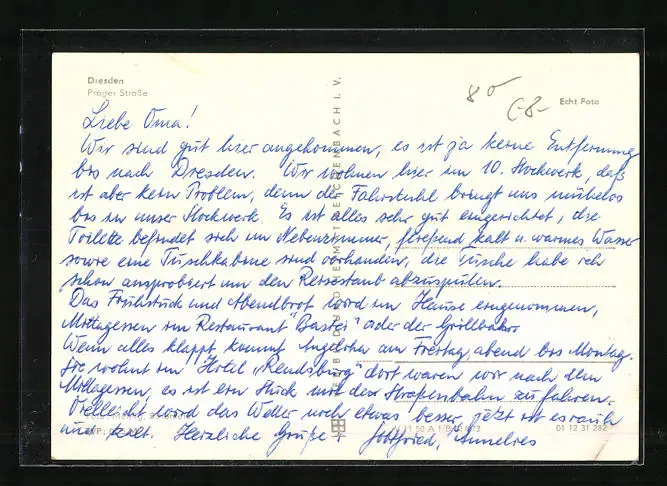 Dresden
Prager Straße
80
Echt Foto
Liebe Oma!
Wir sind gut hier angekommen, es ist ja keine Entfernung
bis nach Dresden. Wir wohnen hier im 10. Stockwerk, daß
ist aber kein Problem, denn der Fahrstuhl bringt uns mühelos
bis in unser Stockwerk. Es ist alles sehr gut eingerichtet, die
Toilette befindet sich im Nebenzimmer, fließend kalt u. warmes Wasser
sowie eine Duschkabine sind vorhanden, die Dusche habe ich
schon ausprobiert um den Reisestaub abzuspülen.
Das Frühstück und Abendbrot wird im Hause eingenommen,
Mittagessen im Restaurant "Bastei" oder der Grillbar
Wenn alles klappt, kommt Angelika am Freitag abend bis Montag.
Sie wohnt im Hotel „Rendsburg" dort waren wir nach dem
Mittagessen, es ist ein Stück mit der Straßenbahn zu fahren.
Vielleicht wird das Wetter noch etwas besser, jetzt ist es rauh
und kalt. Herzliche Grüße Gottfried, Annelies
REICHENBACH I. V.
01 12 31 282